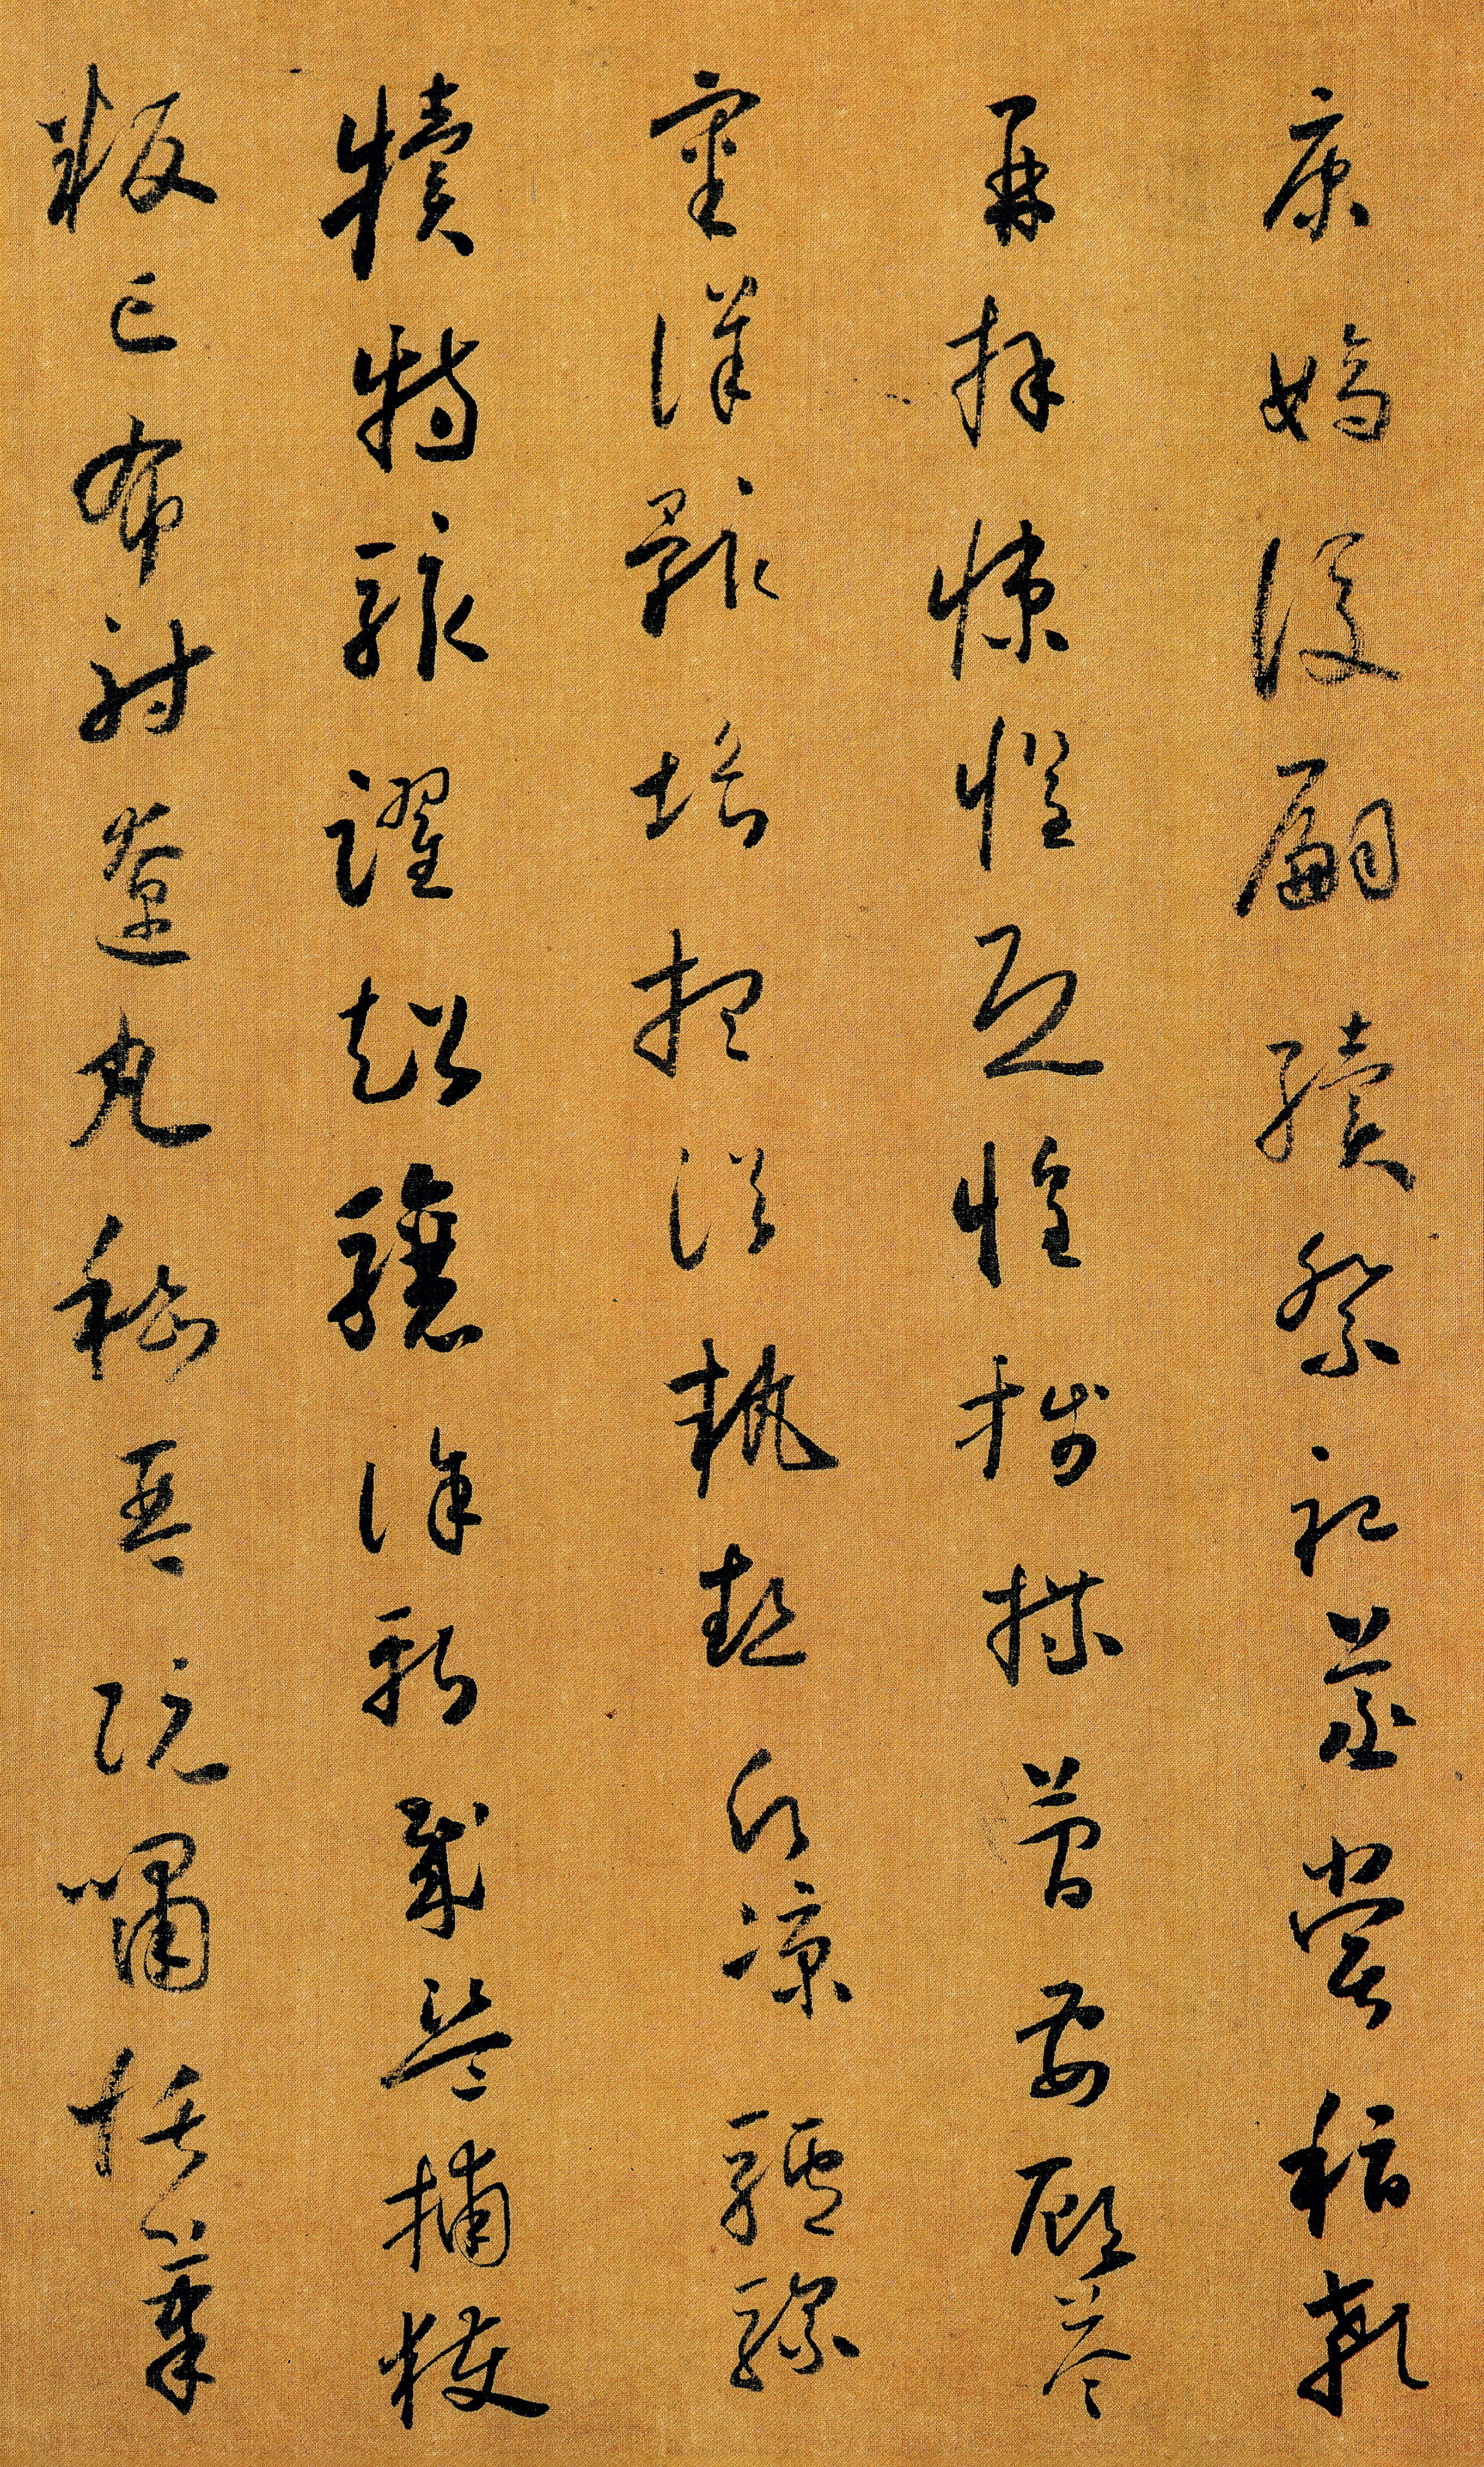 康嫡後嗣續祭祀蒸嘗稽顙
再拜悚懼恐惶牋牒簡要顧答
審詳骸垢想浴執熱願涼驢騾
犢特駭躍超驤誅斬賊盜捕獲
叛亡布射遼丸嵇琴阮嘯恬筆